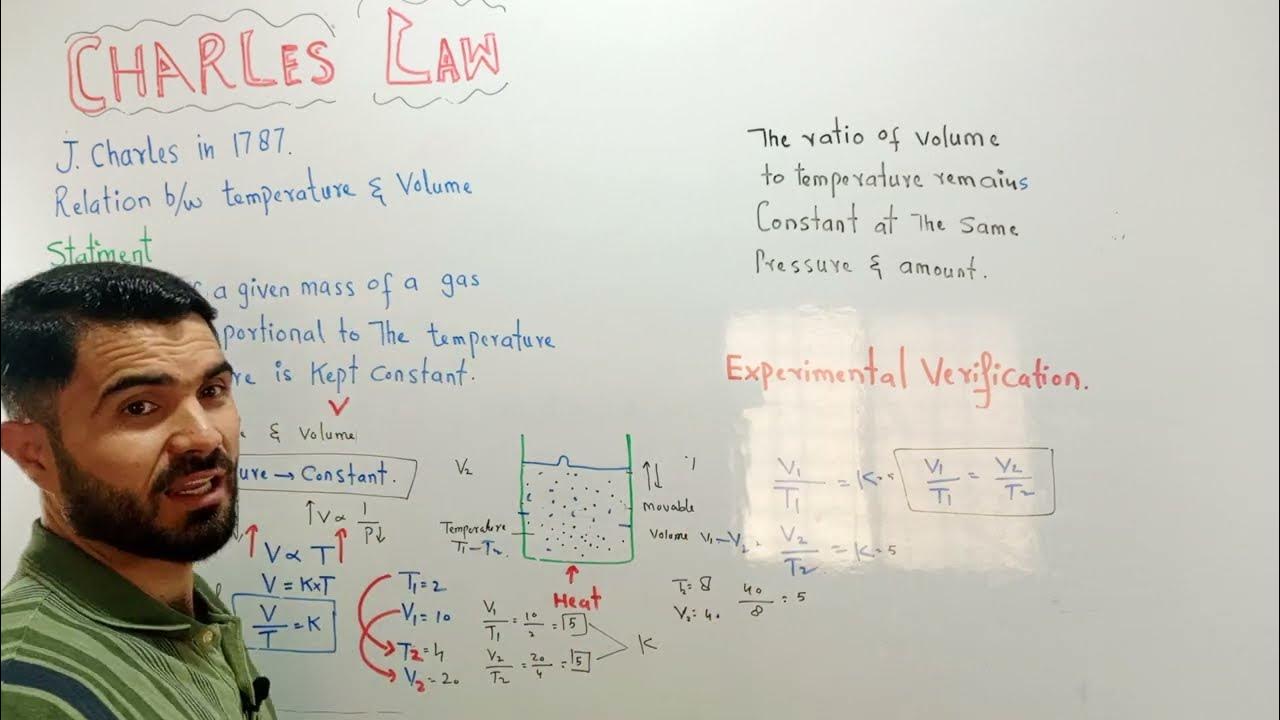 CHARLES LAW
J. Charles in 1787.
Relation b/w temperature & Volume
Statment
a given mass of a gas
portional to The temperature
re is Kept Constant.
& Volume
ure → Constant.
↑V ∝ 1/P↓
↑ V ∝ T ↑
V = K×T
V/T = K
T1 = 2
V1 = 10
T2 = 4
V2 = 20
V1/T1 = 10/2 = 5
V2/T2 = 20/4 = 5
K
V2
Temperature
T1 – T2
movable
Volume V1 – V2
Heat
V3 = 40
40/8 = 5
The ratio of Volume
to temperature remains
Constant at The Same
Pressure & amount.
Experimental Verification.
V1/T1 = K
V1/T1 = V2/T2
V2/T2 = K = 5